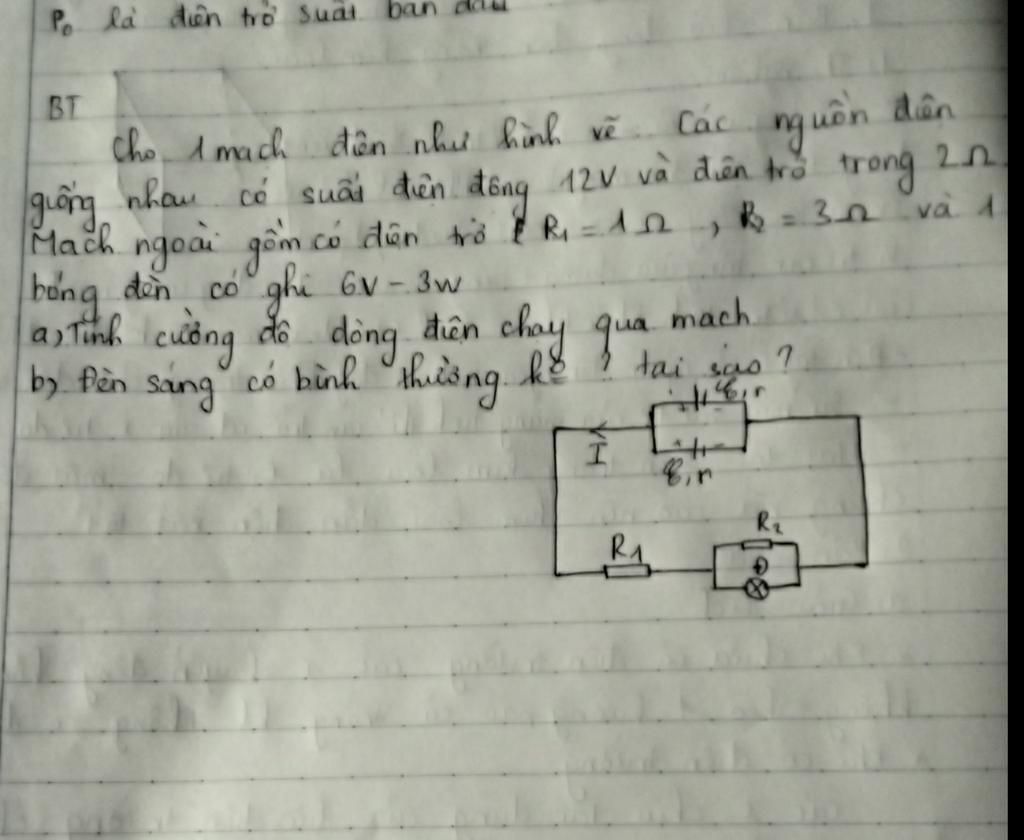 P₀ là điện trở suất ban đầu
BT
Cho 1 mạch điện như hình vẽ. Các nguồn điện
giống nhau có suất điện động 12V và điện trở trong 2Ω
Mạch ngoài gồm có điện trở R₁ = 1Ω, R₂ = 3Ω và 1
bóng đèn có ghi 6V - 3W
a) Tính cường độ dòng điện chạy qua mạch
b) Đèn sáng có bình thường ko? tại sao?
+ - ℰ, r
I + -
ℰ, r
R₂
R₁ Đ